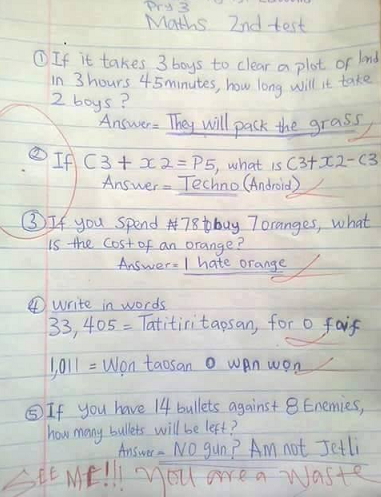 Pry 3
Maths 2nd test
① If it takes 3 boys to clear a plot of land
in 3 hours 45 minutes, how long will it take
2 boys?
Answer = They will pack the grass
② If C3 + x2 = P5, what is C3+x2-C3
Answer = Techno (Android)
③ If you spend ₦78 to buy 7 oranges, what
is the cost of an orange?
Answer = I hate orange
④ Write in words
33,405 = Tatitiri taosan, for 0 faif
1,011 = Won taosan 0 wan won
⑤ If you have 14 bullets against 8 Enemies,
how many bullets will be left?
Answer = NO gun? Am not Jetli
SEE ME!!! You are a waste